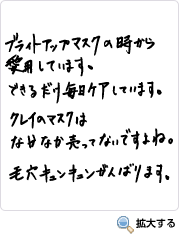 ブライトアップマスクの時から
愛用しています。
できるだけ毎日ケアしています。
クレイのマスクは
なかなか売ってないですよね。
毛穴キュンキュンがんばります。
拡大する